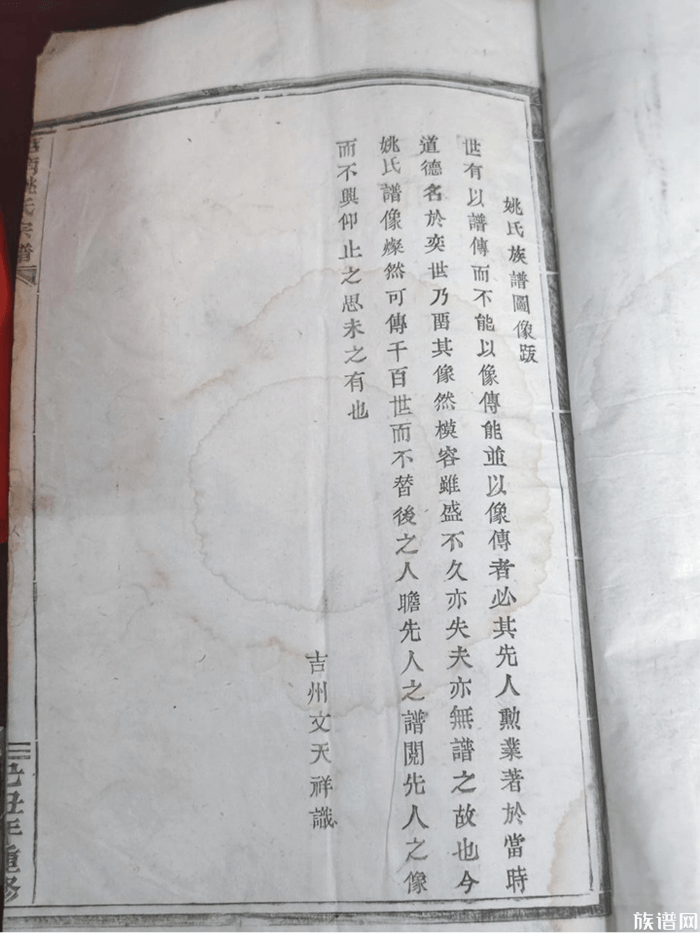 姚氏族譜圖像跋
世有以譜傳而不能以像傳能並以像傳者必其先人勳業著於當時
道德名於奕世乃畱其像然模容雖盛不久亦失夫亦無譜之故也今
姚氏譜像燦然可傳千百世而不替後之人瞻先人之譜閱先人之像
而不興仰止之思未之有也
吉州文天祥識
姚氏宗譜
己丑年重修
族谱网